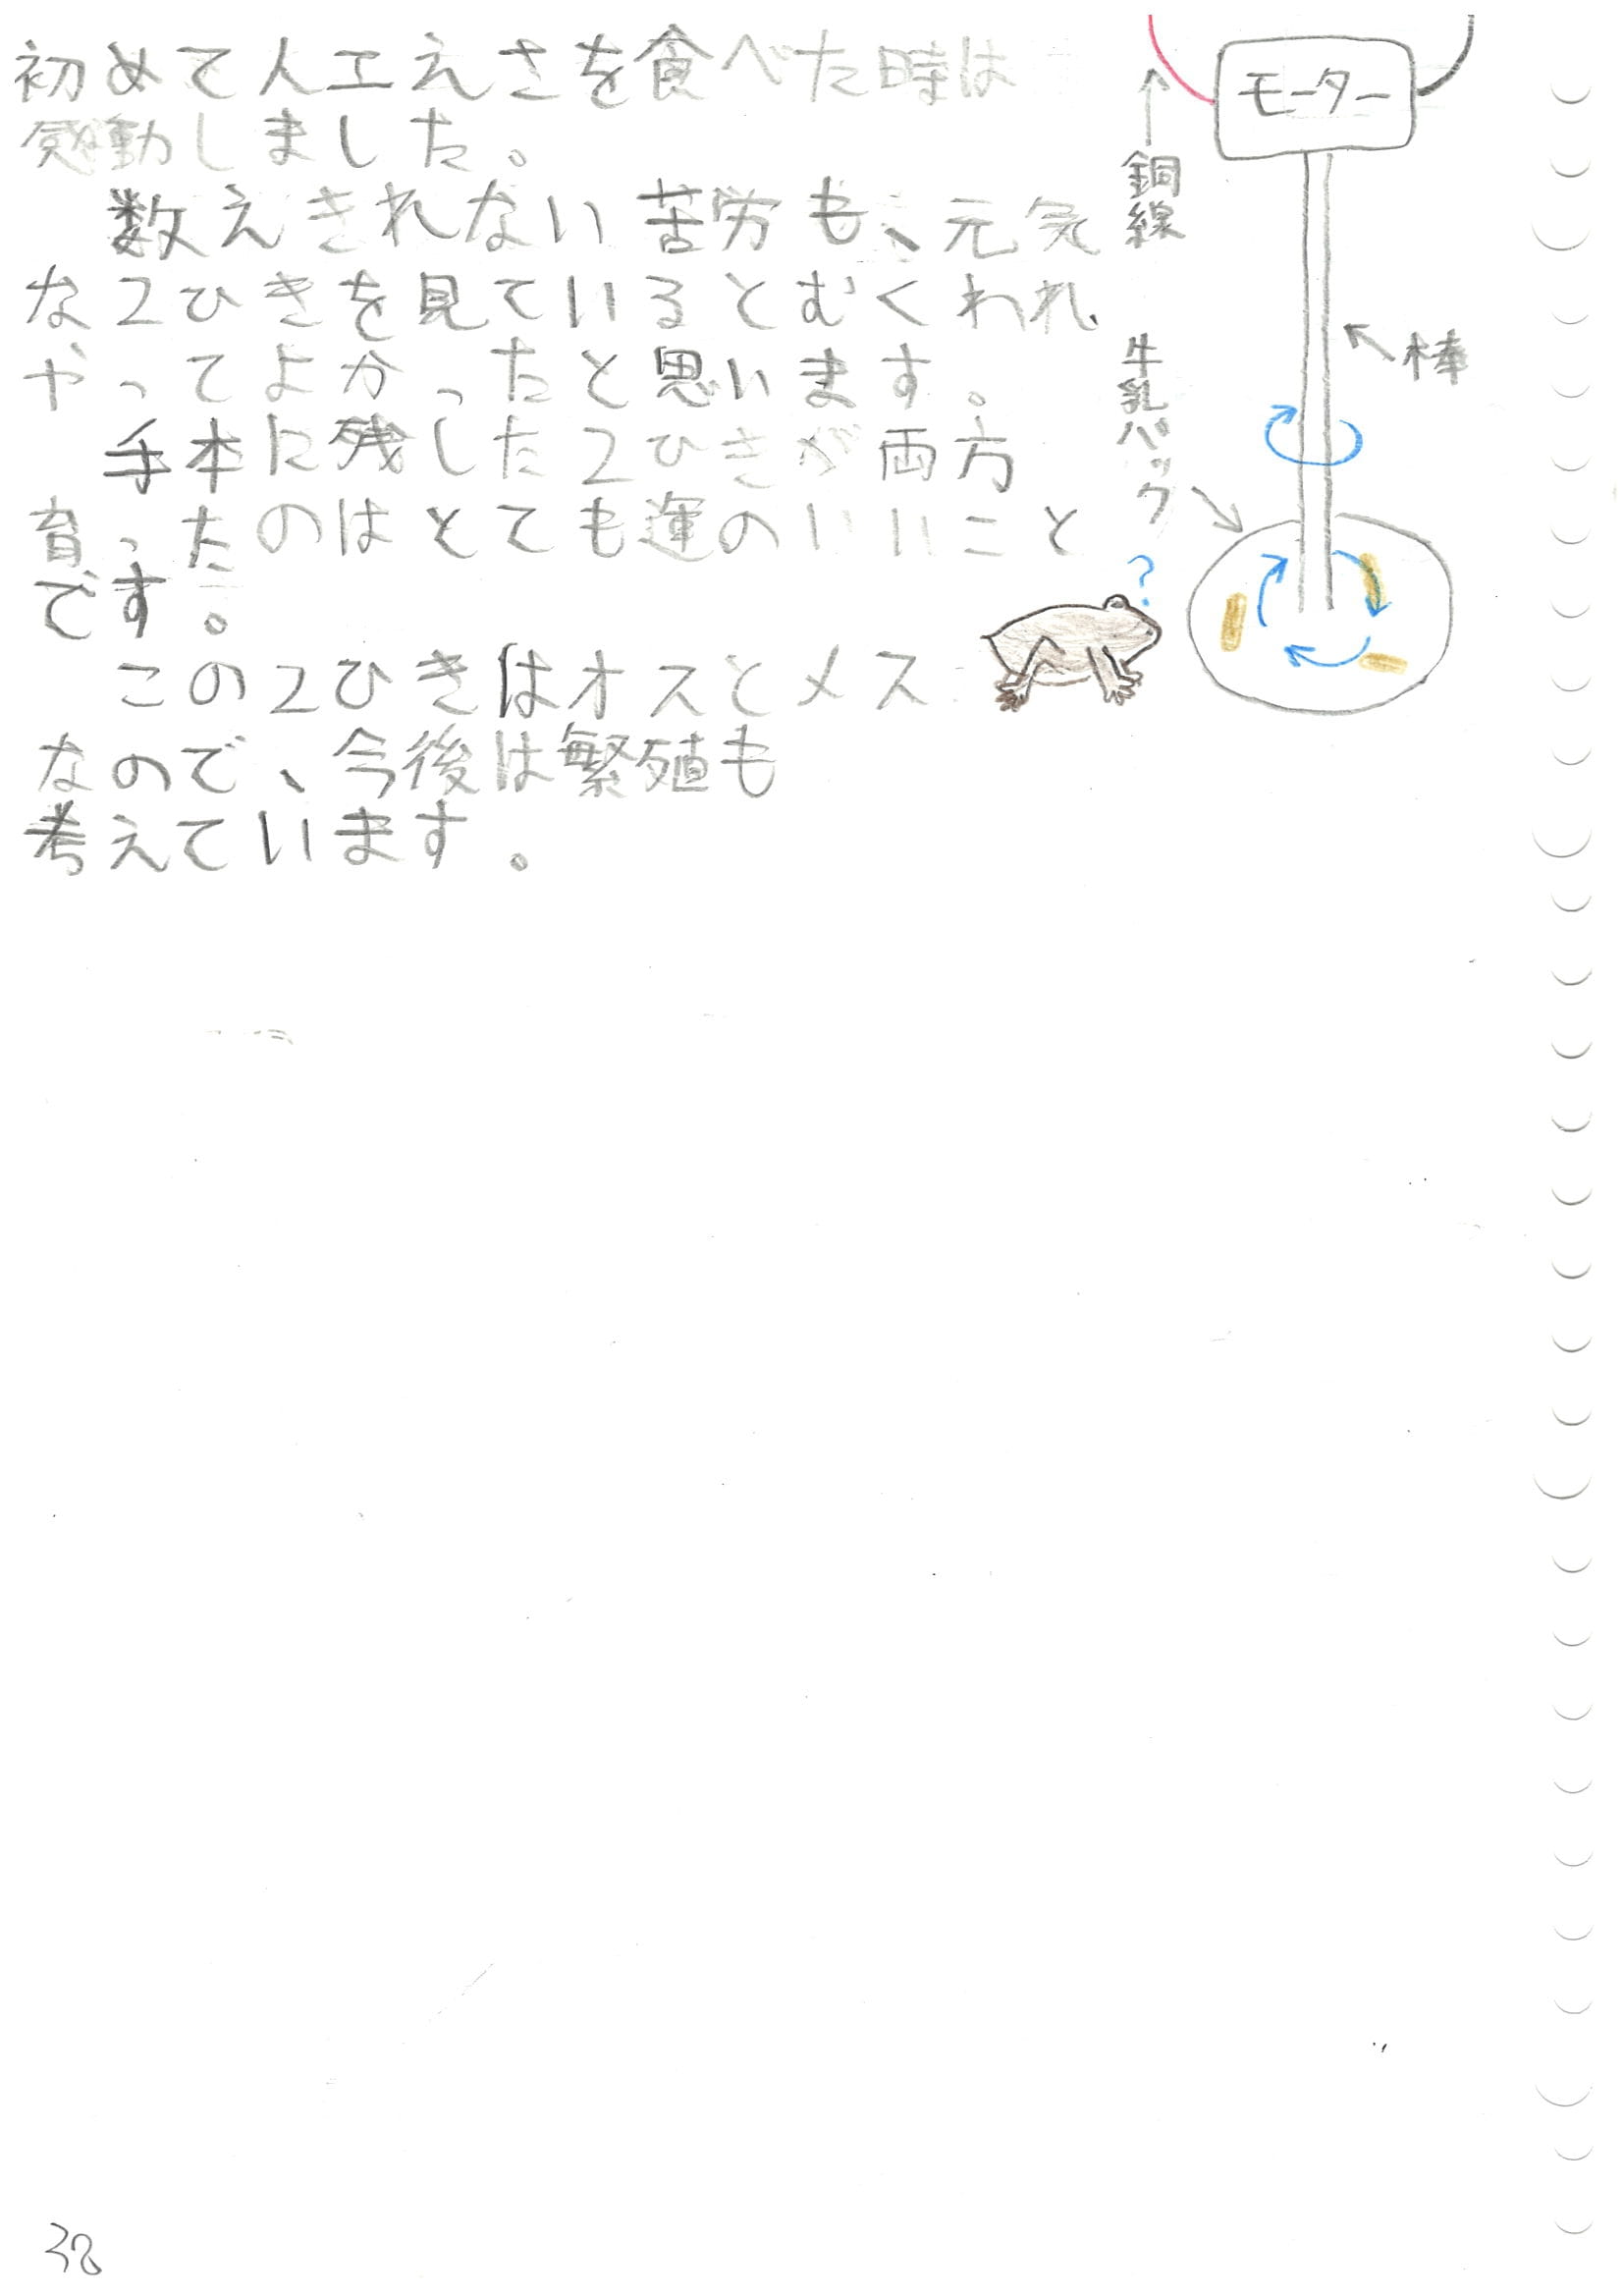 初めて人工えさを食べた時は
感動しました。
数えきれない苦労も、元気
な2ひきを見ているとむくわれ、
やってよかったと思います。
手本に残した2ひきが両方
育ったのはとても運のいいこと
です。
この2ひきはオスとメス
なので、今後は繁殖も
考えています。
モーター
銅線
棒
牛乳パック
?
38